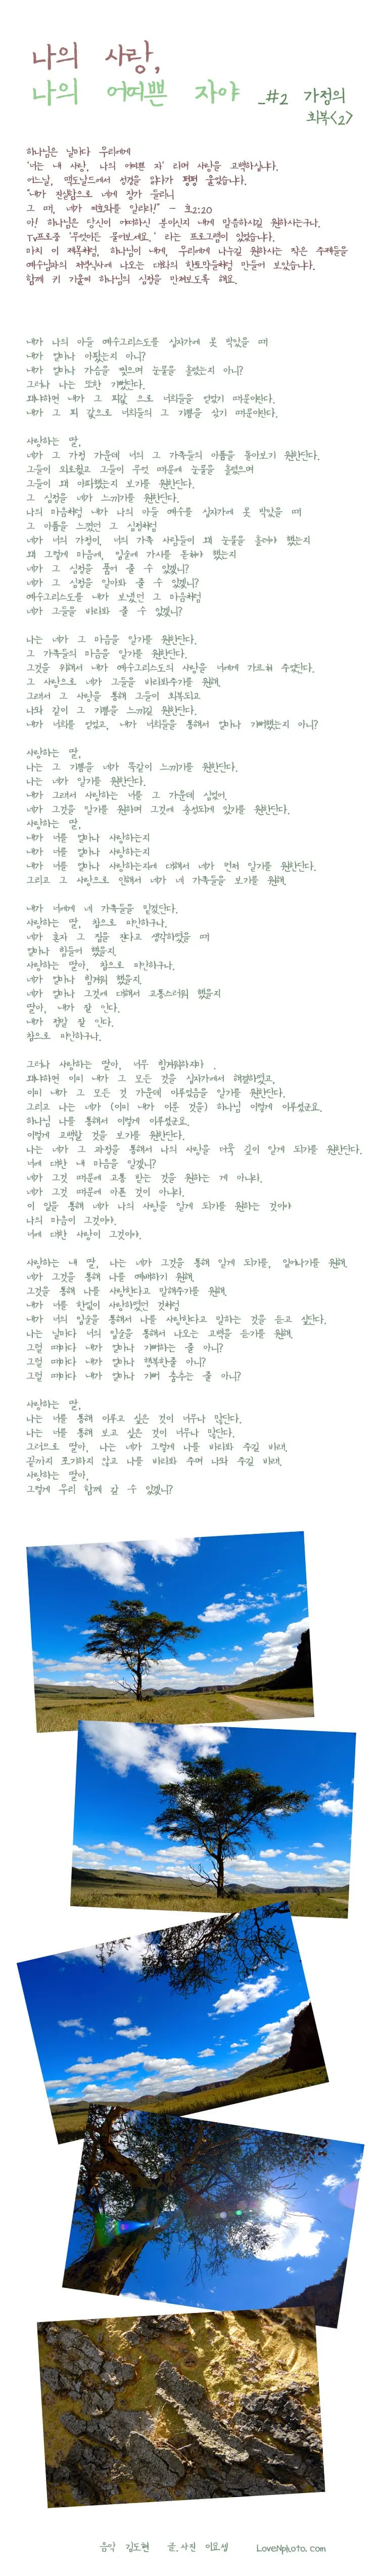 나의 사랑,
나의 어여쁜 자야 _#2 가정의
회복<2>
하나님은 날마다 우리에게
'너는 내 사랑, 나의 어여쁜 자' 라며 사랑을 고백하십니다.
어느날, 맥도날드에서 성경을 읽다가 펑펑 울었습니다.
"내가 진실함으로 네게 장가 들리니
그 때, 네가 여호와를 알리라!" - 호2:20
아! 하나님은 당신이 어떠하신 분이신지 내게 말씀하시길 원하시는구나.
Tv프로중 '무엇이든 물어보세요.' 라는 프로그램이 있었습니다.
마치 이 제목처럼, 하나님이 내게, 우리에게 나누길 원하시는 작은 주제들을
예수님과의 저녁식사에 나오는 대화의 한토막들처럼 만들어 보았습니다.
함께 귀 기울여 하나님의 심정을 만져보도록 해요.
내가 나의 아들 예수그리스도를 십자가에 못 박았을 때
내가 얼마나 아팠는지 아니?
내가 얼마나 가슴을 찢으며 눈물을 흘렸는지 아니?
그러나 나는 또한 기뻤단다.
왜냐하면 내가 그 피값 으로 너희들을 얻었기 때문이란다.
내가 그 피 값으로 너희들의 그 기쁨을 샀기 때문이란다.
사랑하는 딸,
네가 그 가정 가운데 너의 그 가족들의 아픔을 돌아보기 원한단다.
그들이 외로웠고 그들이 무엇 때문에 눈물을 흘렸으며
그들이 왜 아파했는지 보기를 원한단다.
그 심정을 네가 느끼기를 원한단다.
나의 마음처럼 내가 나의 아들 예수를 십자가에 못 박았을 때
그 아픔을 느꼈던 그 심정처럼
네가 너의 가정이, 너의 가족 사람들이 왜 눈물을 흘려야 했는지
왜 그렇게 마음에, 입술에 가시를 돋혀야 했는지
네가 그 심정을 품어 줄 수 있겠니?
네가 그 심정을 알아봐 줄 수 있겠니?
예수그리스도를 내가 보냈던 그 마음처럼
네가 그들을 바라봐 줄 수 있겠니?
나는 네가 그 마음을 알기를 원한단다.
그 가족들의 마음을 알기를 원한단다.
그것을 위해서 내가 예수그리스도의 사랑을 너에게 가르쳐 주었단다.
그 사랑으로 네가 그들을 바라봐주기를 원해.
그래서 그 사랑을 통해 그들이 회복되고
나와 같이 그 기쁨을 느끼길 원한단다.
내가 너희를 얻었고, 내가 너희들을 통해서 얼마나 기뻐했는지 아니?
사랑하는 딸,
나는 그 기쁨을 네가 똑같이 느끼기를 원한단다.
나는 네가 알기를 원한단다.
내가 그래서 사랑하는 너를 그 가운데 심었어.
네가 그것을 알기를 원하며 그것에 충성되게 있기를 원한단다.
사랑하는 딸,
내가 너를 얼마나 사랑하는지
내가 너를 얼마나 사랑하는지
내가 너를 얼마나 사랑하는지에 대해서 네가 먼저 알기를 원한단다.
그리고 그 사랑으로 인해서 네가 네 가족들을 보기를 원해.
내가 너에게 네 가족들을 맡겼단다.
사랑하는 딸, 참으로 미안하구나.
네가 혼자 그 짐을 진다고 생각하였을 때
얼마나 힘들어 했을지.
사랑하는 딸아, 참으로 미안하구나.
네가 얼마나 힘겨워 했을지.
네가 얼마나 그것에 대해서 고통스러워 했을지
딸아, 내가 잘 안다.
내가 정말 잘 안다.
참으로 미안하구나.
그러나 사랑하는 딸아, 너무 힘겨워하지마 .
왜냐하면 이미 내가 그 모든 것을 십자가에서 해결하였고,
이미 내가 그 모든 것 가운데 이루었음을 알기를 원한단다.
그리고 나는 네가 (이미 내가 이룬 것을) 하나님 이렇게 이루셨군요.
하나님 나를 통해서 이렇게 이루셨군요.
이렇게 고백할 것을 보기를 원한단다.
나는 네가 그 과정을 통해서 나의 사랑을 더욱 깊이 알게 되기를 원한단다.
너에 대한 내 마음을 알겠니?
네가 그것 때문에 고통 받는 것을 원하는 게 아니라.
네가 그것 때문에 아픈 것이 아니라.
이 일을 통해 네가 나의 사랑을 알게 되기를 원하는 것이야
나의 마음이 그것이야.
너에 대한 사랑이 그것이야.
사랑하는 내 딸, 나는 네가 그것을 통해 알게 되기를, 일어나기를 원해.
네가 그것을 통해 나를 예배하기 원해.
그것을 통해 나를 사랑한다고 말해주기를 원해.
내가 너를 한없이 사랑하였던 것처럼
내가 너의 입술을 통해서 나를 사랑한다고 말하는 것을 듣고 싶단다.
나는 날마다 너의 입술을 통해서 나오는 고백을 듣기를 원해.
그럴 때마다 내가 얼마나 기뻐하는 줄 아니?
그럴 때마다 내가 얼마나 행복한줄 아니?
그럴 때마다 내가 얼마나 기뻐 춤추는 줄 아니?
사랑하는 딸,
나는 너를 통해 이루고 싶은 것이 너무나 많단다.
나는 너를 통해 보고 싶은 것이 너무나 많단다.
그러므로 딸아, 나는 네가 그렇게 나를 바라봐 주길 바래.
끝까지 포기하지 않고 나를 바라봐 주며 나와 주길 바래.
사랑하는 딸아,
그렇게 우리 함께 갈 수 있겠니?
음악 김도현 글.사진 이요셉 LoveNphoto.com